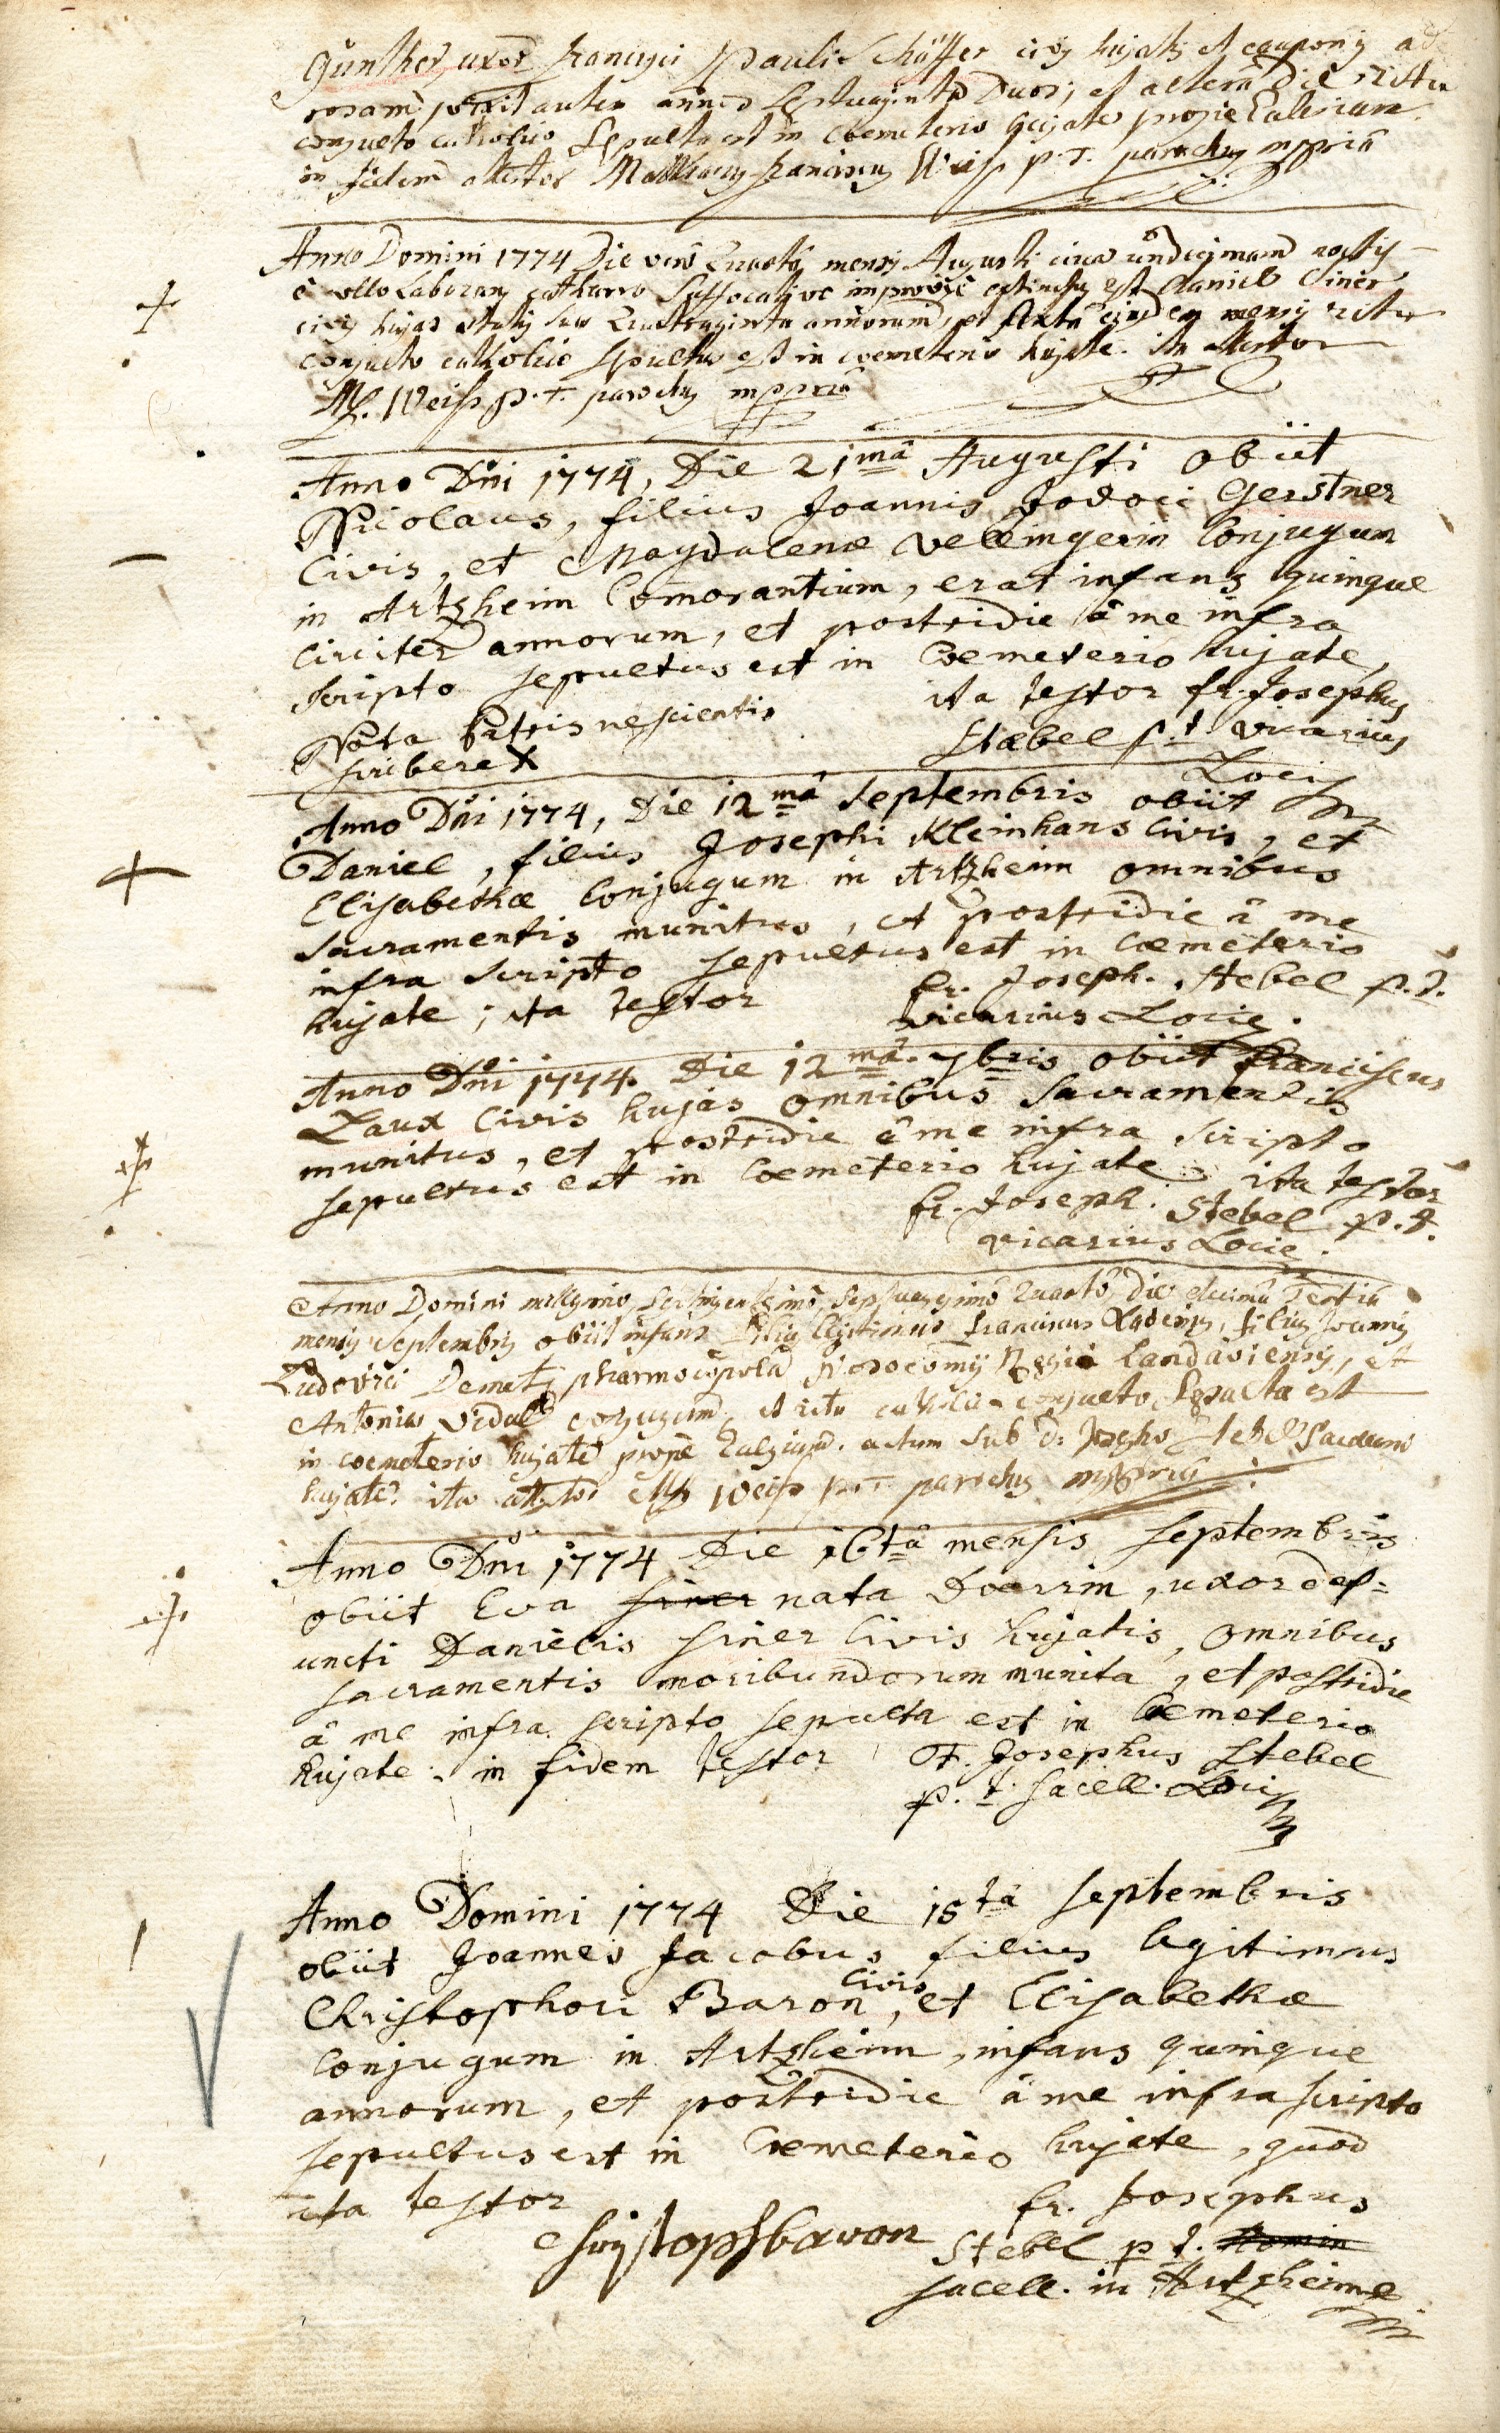 Günther uxor francisci Pauli Schäffer civis hujatis et cauponis ad
rosam, vixit autem annis septuaginta duos, et altera die ritu
consueto catholico sepulta est in coemeterio hujate prope ecclesiam
in fidem attestor Matthaeus franciscus Weiss p. T. parochus mppriâ
Anno Domini 1774 Die vero quarto mensis Augusti circa undecimam noctis
laborans catharro suffocativo improvise extinctus est Daniel Siner
civis hujas aetatis suae quadraginta annorum, et sexta ejusdem mensis ritu
consueto catholico sepultus est in coemeterio hujate. ita attestor
M. Weiss p. t. parochus mppriâ
Anno Dñi 1774, Die 21mâ Augusti obiit
Nicolaus, filius Joannis Jodoci Gerstner
Civis, et Magdalenae Vellingerin Conjugum
in Artzheim Comorantium, erat infans quinque
Circiter annorum, et postridie â me infra
scripto sepultus est in Coemeterio hujate,
ita testor fr. Josephus
Nota patris nescientis
Stæbel p.t vicarius
scribere X
Locis
Anno Dñi 1774, Die 12mâ Septembris obiit
Daniel, filius Josephi Kleinhans Civis, et
Elisabethæ Conjugum in Artzheim omnibus
Sacramentis munitus, et postridie â me
infra scripto sepultus est in Coemeterio
hujate; ita testor fr. Joseph. Stebel p.t.
vicarius Locie.
Anno Dñi 1774. Die 12mâ. 7bris obiit Franciscus
Laux Civis hujas omnibus Sacramentis
munitus, et postridie â me infra scripto
sepultus est in Coemeterio hujate ita testor
fr. Joseph. Stebel p.t.
vicarius Locie.
Anno Domini millesimo, septingentesimo, septuagesimo quarto, die decima tertia
mensis septembris obiit infans filius legitimus Franciscus Ludovicus, filius Joannis
Ludovici Demetz pharmacopola Nosocomij Regii Landaviensis, et
Antonia Vidal conjugum, et ritu catholico consueto sepulta est
in coemeterio hujate prope ecclesiam. actum sub D: Josepho Stebel Sacellano
hujate. ita attestor M. Weiss p. T. parochus mppriâ
Anno Dñi 1774 Die 16tâ mensis Septembris
obiit Eva Siner nata Doerrin, uxor def=
uncti Danielis Siner Civis hujatis, omnibus
sacramentis moribundorum munita, et postridie
â me infra scripto sepulta est in Coemeterio
hujate. in fidem testor F. Josephus Stebel
p. t. Sacell. Loci
Anno Domini 1774 Die 18tâ Septembris
obiit Joannes Jacobus filius legitimus
Civis
Christophori Baron, et Elisabethæ
Conjugum in Artzheim, infans quinque
annorum, et postridie â me infra scripto
sepultus est in Coemeterio hujate, quod
ita testor fr. Josephus
Christoph baron Stebel p t.
Sacell. in Artzheim